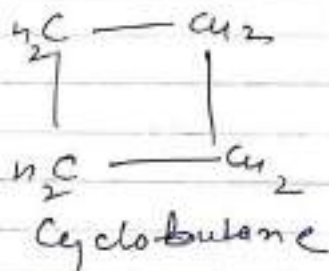 H₂C — CH₂
H₂C — CH₂
Cyclobutane